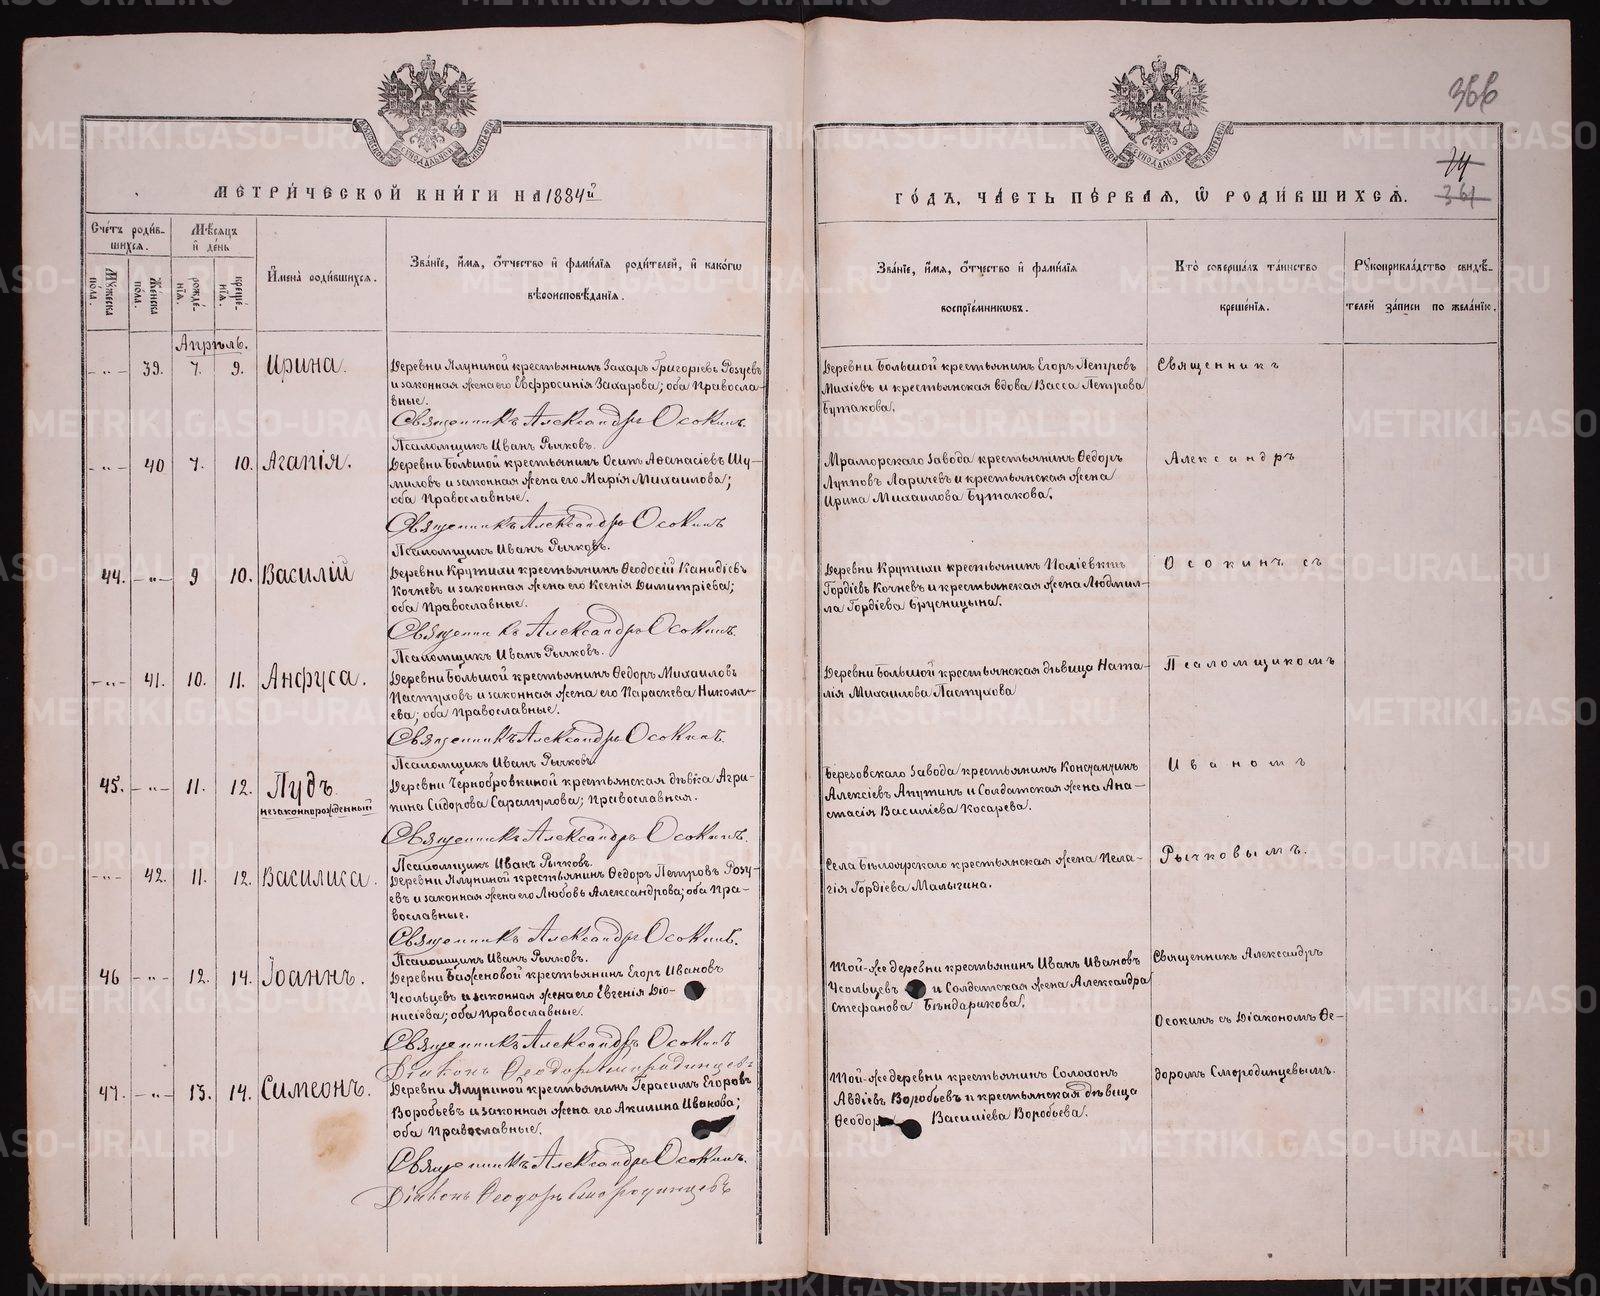 366
74
361
МЕТРИЧЕСКОЙ КНИГИ НА 1884й
ГОДЪ, ЧАСТЬ ПЕРВАЯ, Ѡ РОДИВШИХСЯ.
Счетъ родив-
шихся.
Мужеска пола.
Женска пола.
Мѣсяцъ
и день
рожде-
нія.
креще-
нія.
Имена родившихся.
Званіе, имя, отчество и фамилія родителей, и какогѡ
вѣроисповѣданія.
Званіе, имя, отчество и фамилія
воспріемниковъ.
Кто совершалъ таинство
крещенія.
Рукоприкладство свидѣ-
телей записи по желанію.
Апрѣль.
- " - 39. 7. 9. Ирина.
Деревни Ялуниной крестьянинъ Захаръ Григоріевъ Розуевъ
и законная жена его Евфросинія Захарова; оба Правосла-
вные.
Священникъ Александръ Осокинъ.
Псаломщикъ Иванъ Рычковъ.
Деревни Большой крестьянинъ Егоръ Петровъ
Михіевъ и крестьянская вдова Васса Петрова
Бутакова.
Священникъ
- " - 40 7. 10. Агапія.
Деревни Большой крестьянинъ Осипъ Аѳанасіевъ Шу-
миловъ и законная жена его Марія Михаилова;
оба Православные.
Священникъ Александръ Осокинъ
Псаломщикъ Иванъ Рычковъ.
Мраморскаго Завода крестьянинъ Ѳедоръ
Лупповъ Ларичевъ и крестьянская жена
Ирина Михаилова Бутакова.
Александръ
44. - " - 9 10. Василій
Деревни Крутихи крестьянинъ Ѳеодосій Канидіевъ
Кочневъ и законная жена его Ксенія Димитріева;
оба Православные.
Священникъ Александръ Осокинъ.
Псаломщикъ Иванъ Рычковъ.
Деревни Крутихи крестьянинъ Поліевктъ
Гордіевъ Кочневъ и крестьянская жена Людмил-
ла Гордіева Брусницына.
Осокинъ съ
- " - 41. 10. 11. Анфуса.
Деревни Большой крестьянинъ Ѳедоръ Михаиловъ
Пастуховъ и законная жена его Параскева Никола-
ева; оба Православные.
Священникъ Александръ Осокинъ.
Псаломщикъ Иванъ Рычковъ
Деревни Большой крестьянская дѣвица Ната-
лія Михаилова Пастухова
Псаломщикомъ
45. - " - 11. 12. Пудъ.
незаконнорожденный
Деревни Чернобровкиной крестьянская дѣвка Агри-
пина Сидорова Сарапулова; Православная.
Священникъ Александръ Осокинъ.
Псаломщикъ Иванъ Рычковъ.
Березовскаго Завода крестьянинъ Константинъ
Алексіевъ Апутинъ и Солдатская жена Ана-
стасія Василіева Косарева.
Иваномъ
- " - 42. 11. 12. Василиса.
Деревни Ялуниной крестьянинъ Ѳедоръ Петровъ Розу-
евъ и законная жена его Любовь Александрова; оба Пра-
вославные.
Священникъ Александръ Осокинъ.
Псаломщикъ Иванъ Рычковъ.
Села Бѣлоярскаго крестьянская жена Пела-
гія Гордіева Малыгина.
Рычковымъ.
46 - " - 12. 14. Іоаннъ.
Деревни Баженовой крестьянинъ Егоръ Ивановъ
Усольцевъ и законная жена его Евгенія Діо-
нисіева; оба православные.
Священникъ Александръ Осокинъ
Діаконъ Ѳеодоръ Смородинцевъ
Той-же деревни крестьянинъ Иванъ Ивановъ
Усольцевъ и Солдатская жена Александра
Стефанова Бѣндарикова.
Священникъ Александръ
Осокинъ съ Діакономъ Ѳе-
47. - " - 13. 14. Симеонъ.
Деревни Ялуниной крестьянинъ Герасимъ Егоровъ
Воробьевъ и законная жена его Акилина Иванова;
оба Православные.
Священникъ Александръ Осокинъ.
Діаконъ Ѳеодоръ Смородинцевъ
Той-же деревни крестьянинъ Солохонъ
Авдіевъ Воробьевъ и крестьянская дѣвица
Ѳеодор Василіева Воробьева.
доромъ Смородинцевымъ.
METRIKI.GASO-URAL.RU